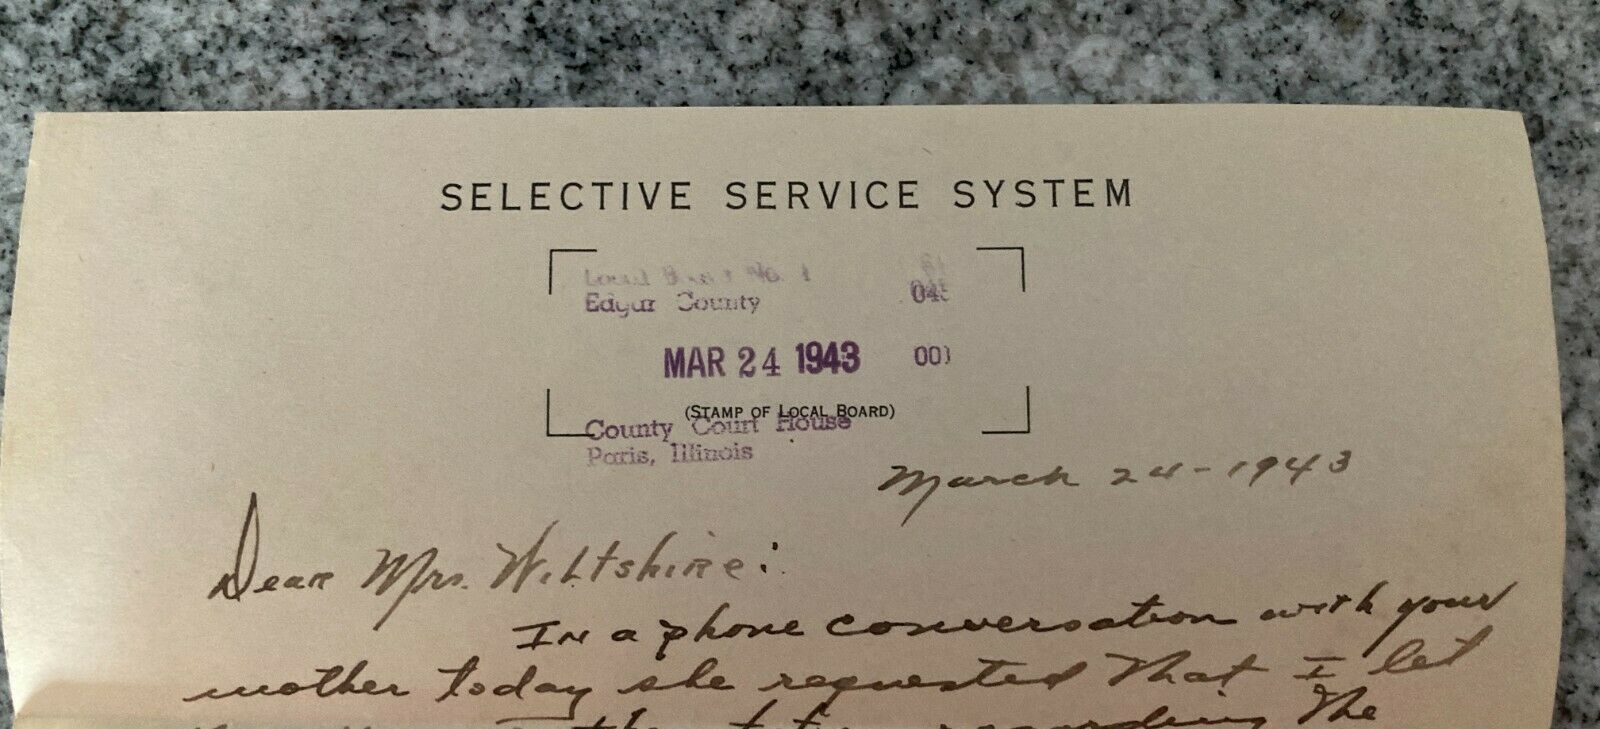 SELECTIVE SERVICE SYSTEM
Local Board No. 1
Edgar County 045
MAR 24 1943 001
(STAMP OF LOCAL BOARD)
County Court House
Paris, Illinois
March 24-1943
Dear Mrs. Wiltshire:
In a phone conversation with your
mother today she requested that I let
regarding the